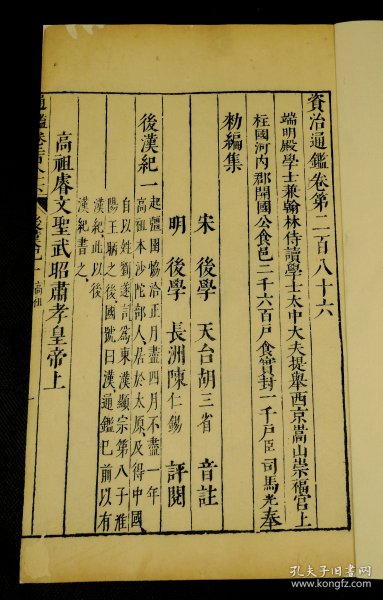 資治通鑑卷第二百八十六
端明殿學士兼翰林侍讀學士太中大夫提舉西京嵩山崇福宮上
柱國河內郡開國公食邑二千六百戶食實封一千戶臣司馬光奉
勑編集
宋後學天台胡三省音註
明後學長洲陳仁錫評閱
後漢紀一
起彊圉協洽正月盡四月不盡一年
高祖本沙陀部人居於太原及得中國
自以姓劉遂詞爲東漢顯宗第八子淮
陽王昞之後國號曰漢通鑑巳前以有
漢紀此以後
漢紀書之
高祖睿文聖武昭肅孝皇帝上
通鑑卷
高祖
孔夫子旧书网
book.kongfz.com